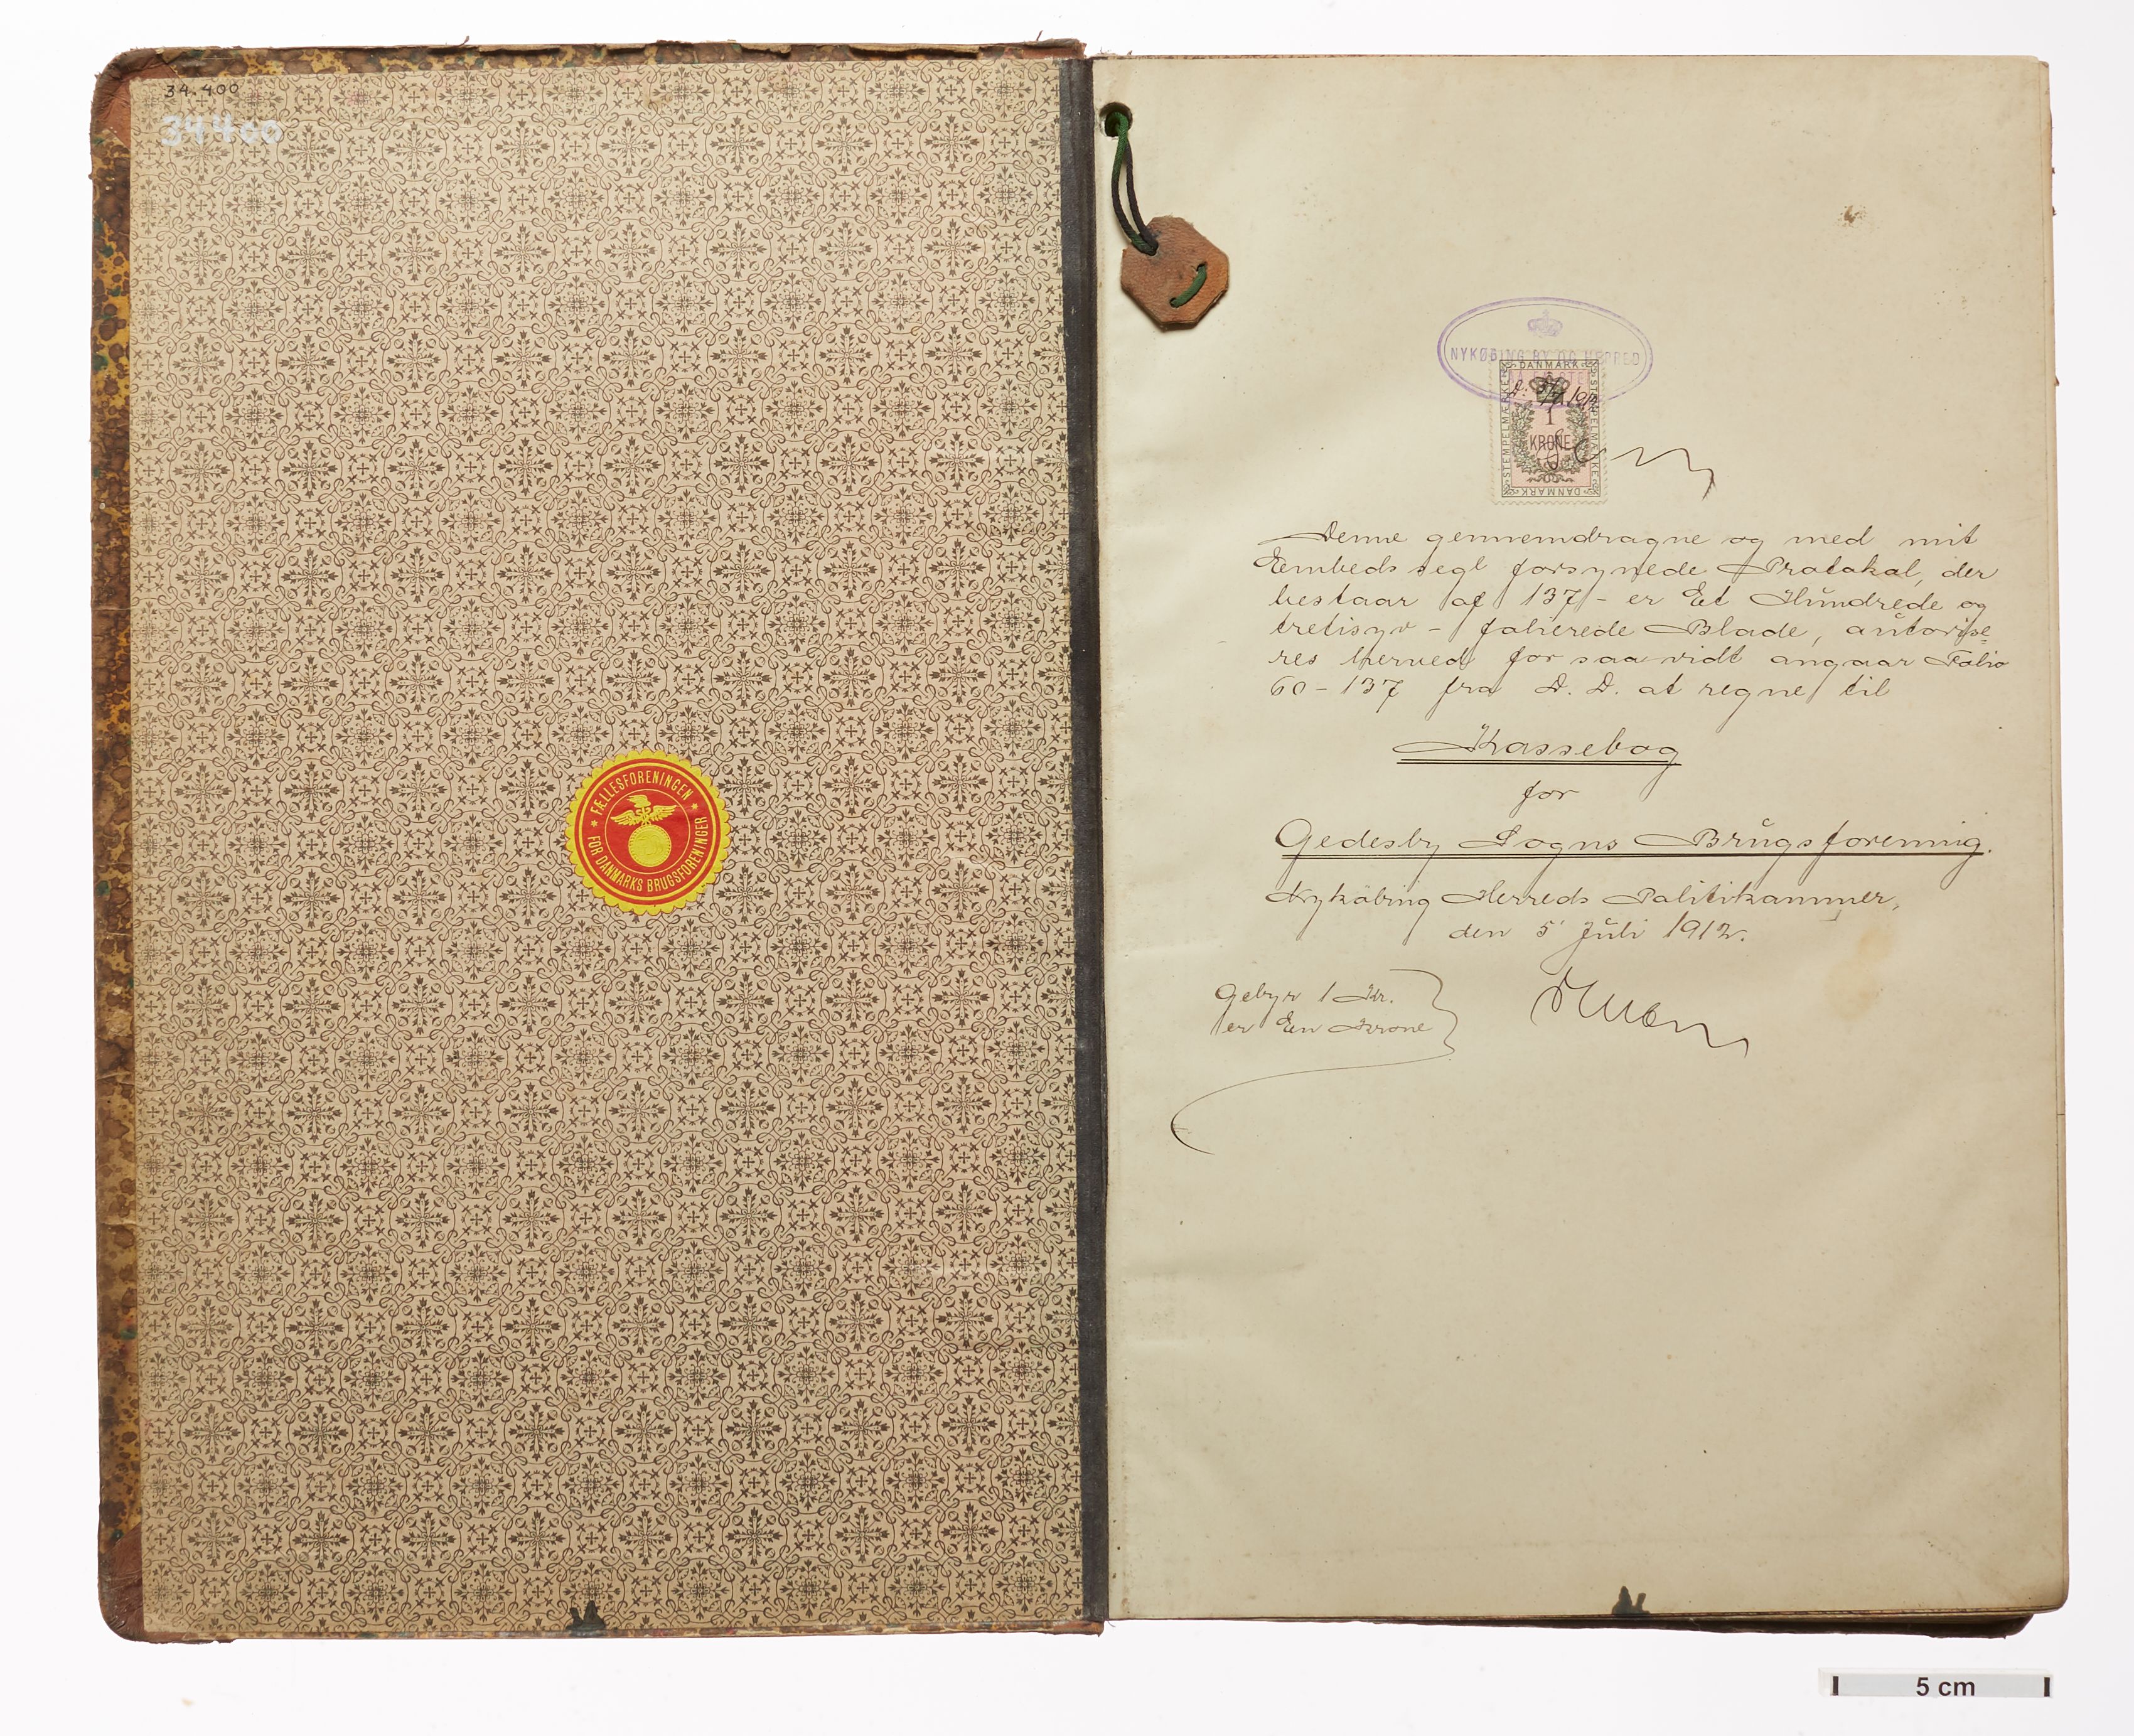 34.400
34400
FÆLLESFORENINGEN
FOR DANMARKS BRUGSFORENINGER
NYKØBING BY OG HERRED
DANMARK
STEMPELMÆRKE
STEMPELMÆRKE
1
KRONE
DANMARK
Denne gennemdragne og med mit
Eembeds segl forsynede Protokol, der
bestaar af 137 - er Et Hundrede og
tretisyv - folierede Blade, autorise=
res herved for saa vidt angaar Folio
60-137 fra D. D. at regne til
Kassebog
for
Gedesby Sogns Brugsforening.
Nykøbing Herreds Politikammer,
den 5 Juli 1912.
Gebyr 1 Kr.
er Een Krone
5 cm